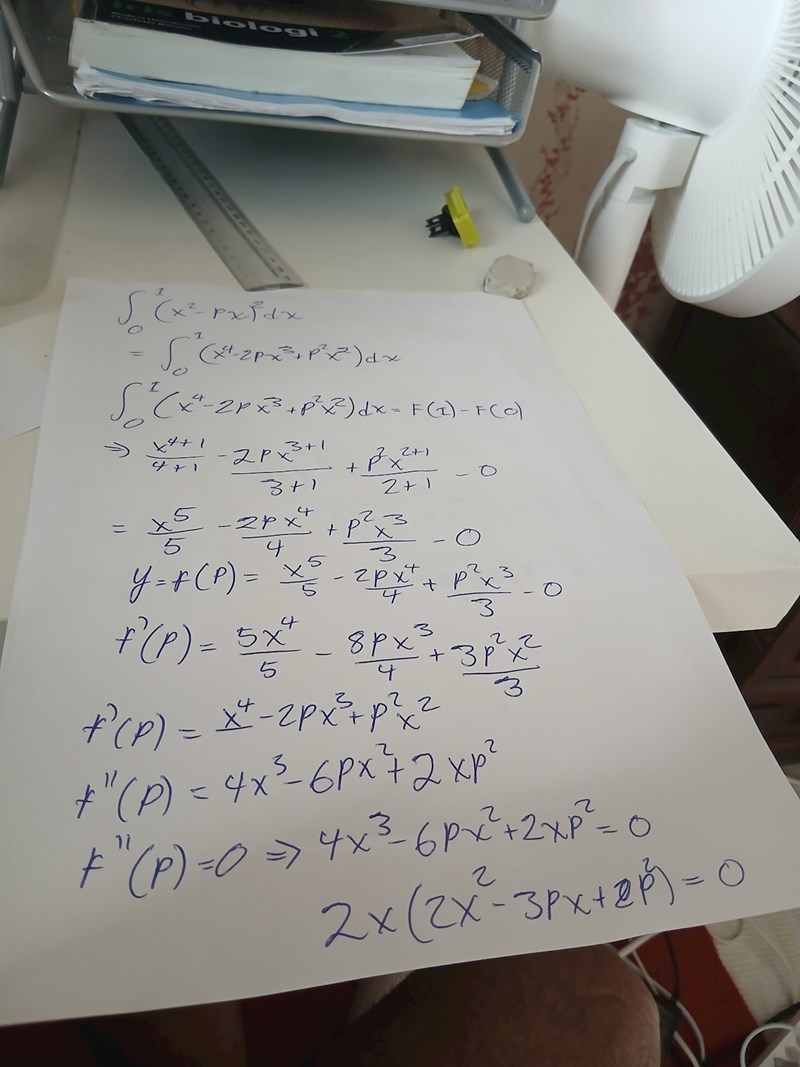 iris biologi 2
∫₀¹ (x² - px)² dx
= ∫₀¹ (x⁴ - 2px³ + p²x²) dx
∫₀¹ (x⁴ - 2px³ + p²x²) dx = F(1) - F(0)
⇒ x⁴⁺¹/4+1 - 2px³⁺¹/3+1 + p²x²⁺¹/2+1 - 0
= x⁵/5 - 2px⁴/4 + p²x³/3 - 0
y = f(p) = x⁵/5 - 2px⁴/4 + p²x³/3 - 0
f'(p) = 5x⁴/5 - 8px³/4 + 3p²x²/3
f'(p) = x⁴ - 2px³ + p²x²
f''(p) = 4x³ - 6px² + 2xp²
f''(p) = 0 ⇒ 4x³ - 6px² + 2xp² = 0
2x(2x² - 3px + p²) = 0